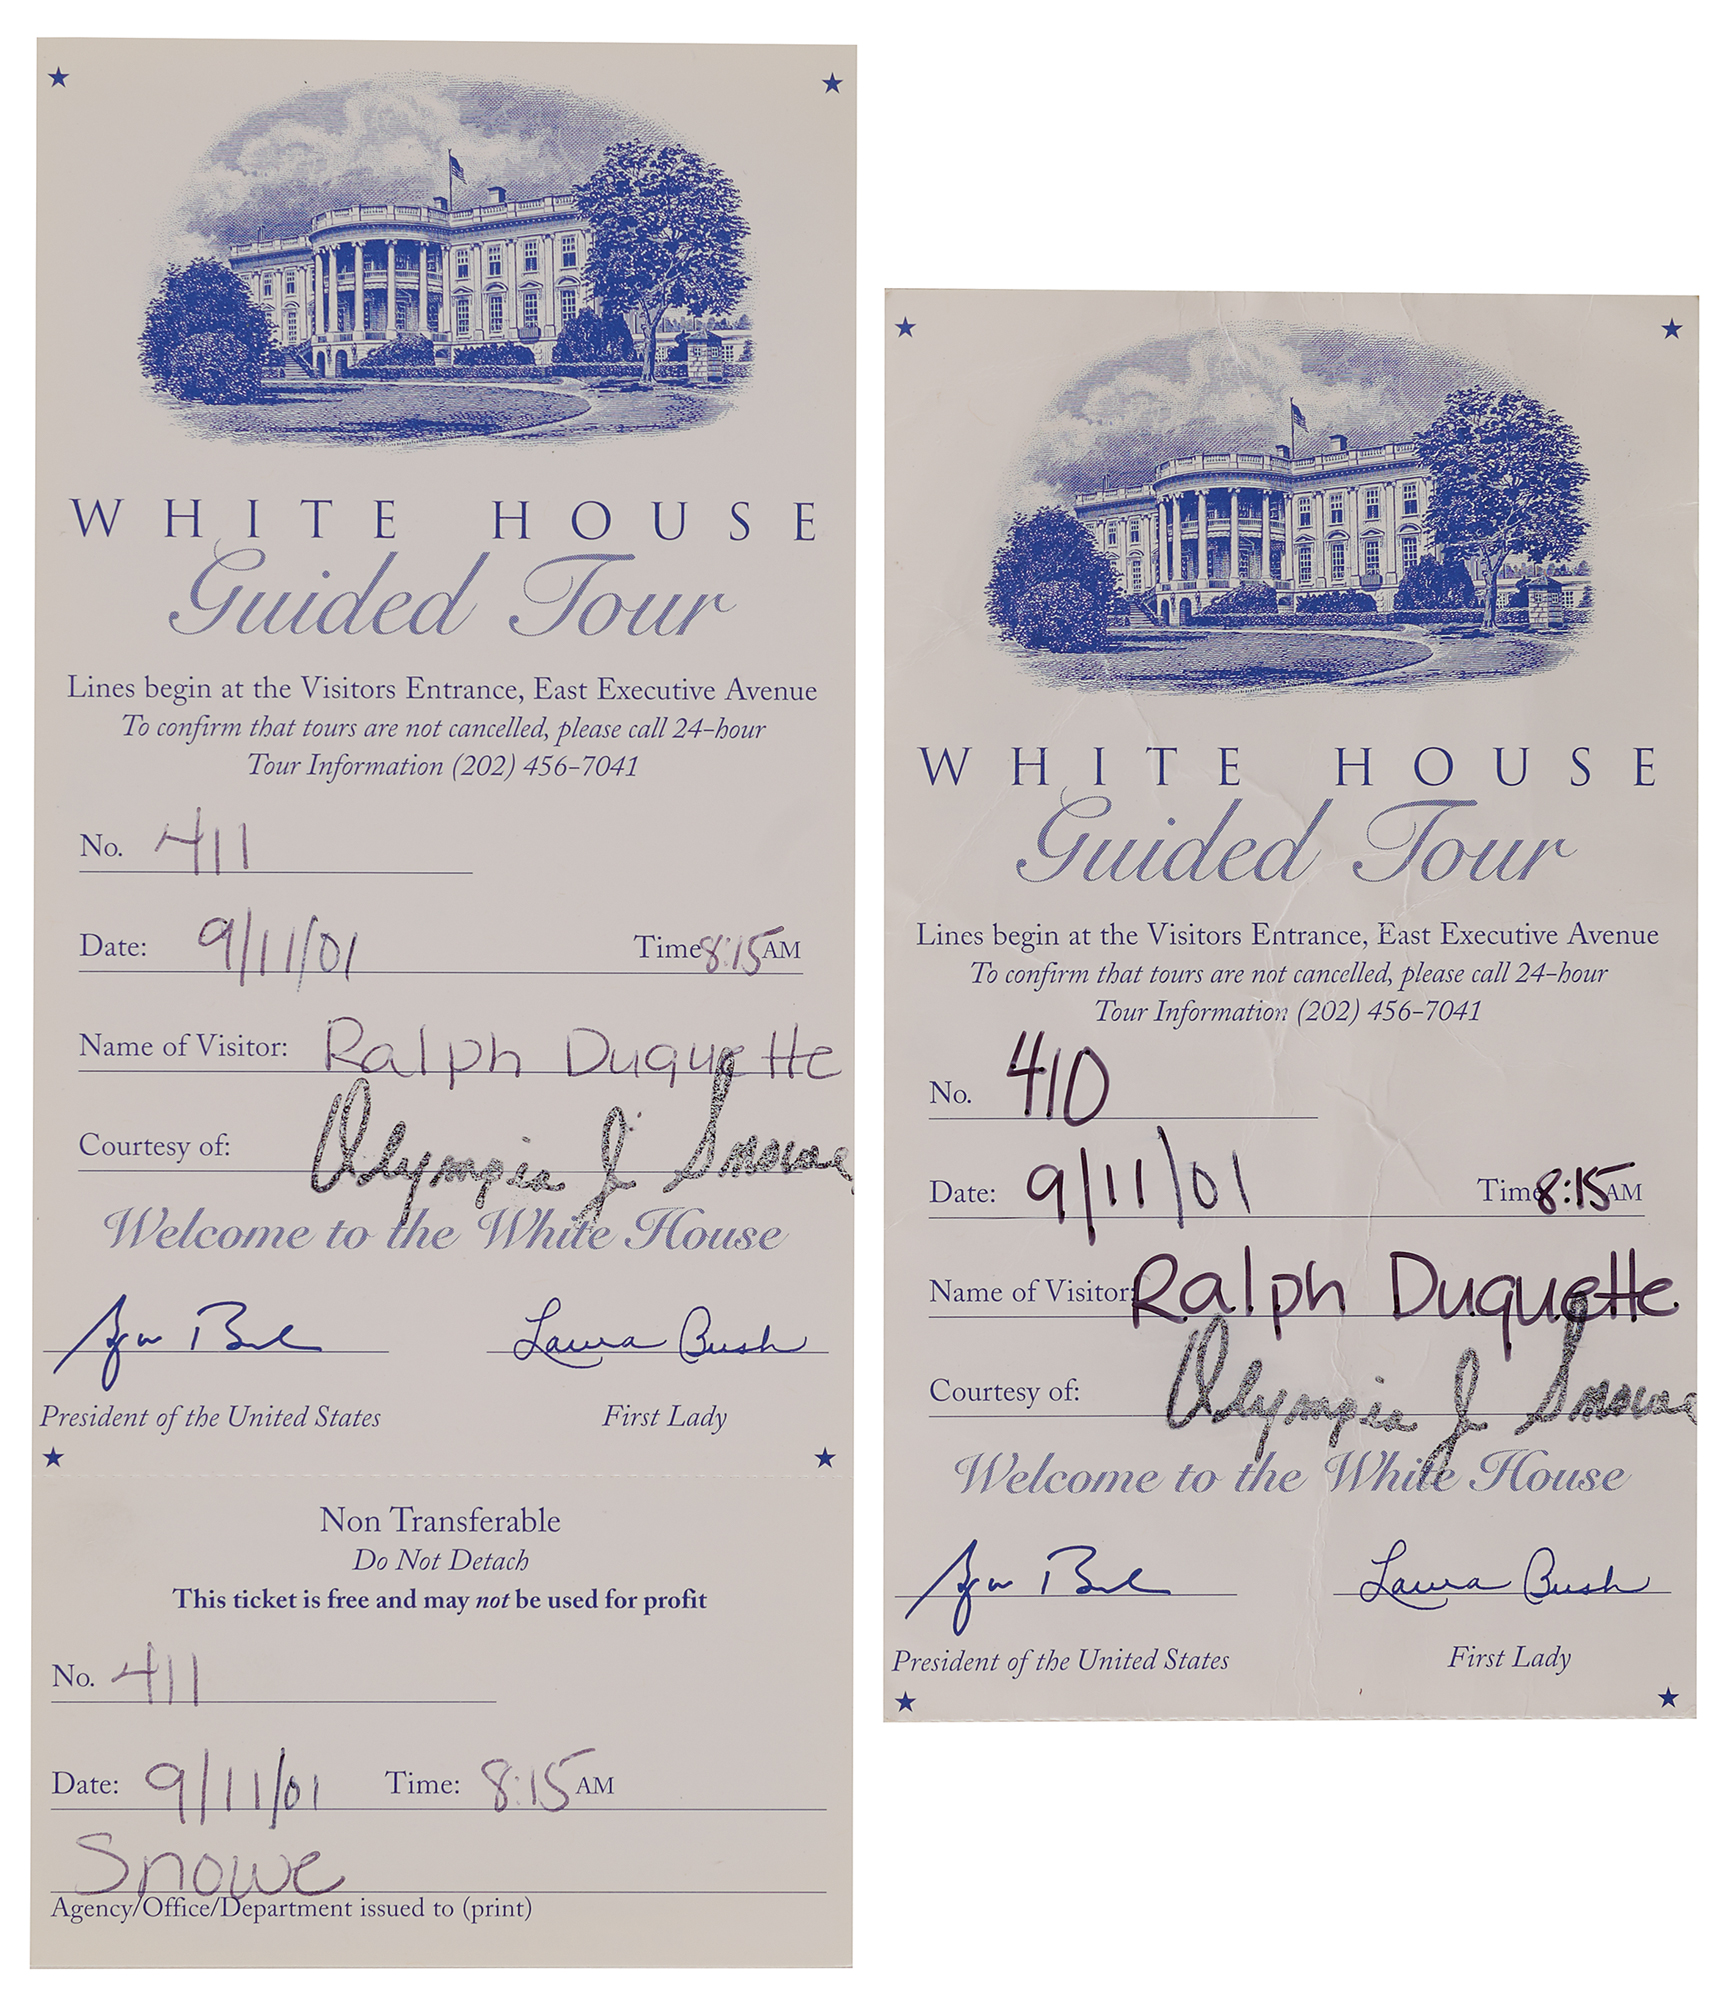 WHITE HOUSE
Guided Tour
Lines begin at the Visitors Entrance, East Executive Avenue
To confirm that tours are not cancelled, please call 24-hour
Tour Information (202) 456-7041
No. 411
Date: 9/11/01 Time 8:15 AM
Name of Visitor: Ralph Duquette
Courtesy of: Olympia J Snowe
Welcome to the White House
George Bush Laura Bush
President of the United States First Lady
Non Transferable
Do Not Detach
This ticket is free and may not be used for profit
No. 411
Date: 9/11/01 Time: 8:15 AM
Snowe
Agency/Office/Department issued to (print)
WHITE HOUSE
Guided Tour
Lines begin at the Visitors Entrance, East Executive Avenue
To confirm that tours are not cancelled, please call 24-hour
Tour Information (202) 456-7041
No. 410
Date: 9/11/01 Time 8:15 AM
Name of Visitor: Ralph Duquette
Courtesy of: Olympia J Snowe
Welcome to the White House
George Bush Laura Bush
President of the United States First Lady